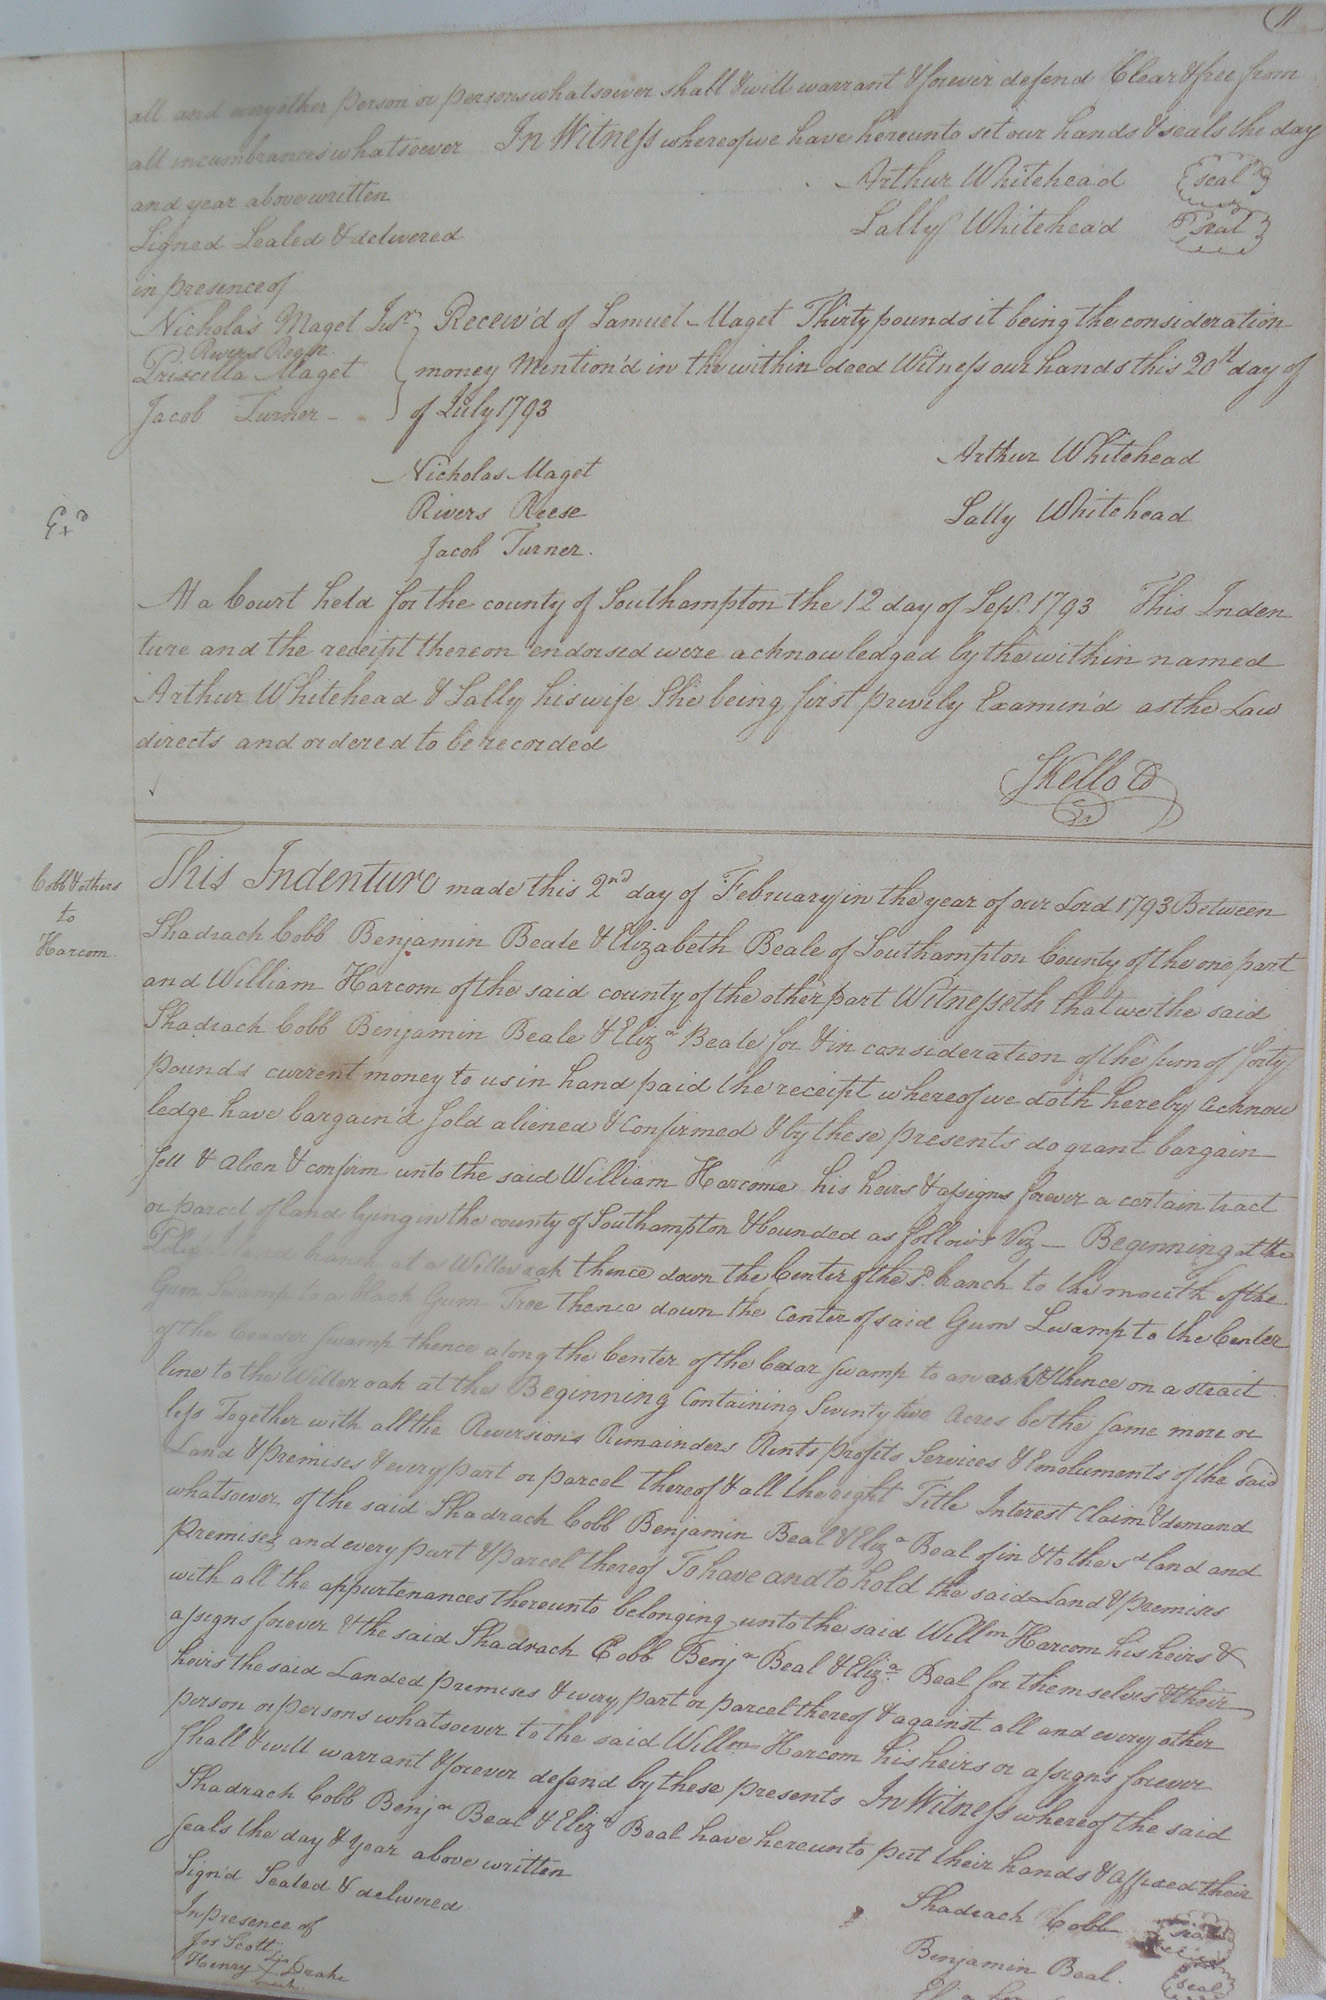 11
all and any other person or persons whatsoever shall & will warrant & forever defend Clear & free from
all incumbrances whatsoever In Witness whereof we have hereunto set our hands & seals the day
and year above written
Arthur Whitehead seal
Signed Sealed & delivered
Sally Whitehead seal
in presence of
Nicholas Maget Junr
Rivers Reese
Priscilla Maget
Jacob Turner
Receiv'd of Samuel Maget Thirty pounds it being the consideration
money Mention'd in the within deed Witness our hands this 20th day of
of July 1793
Nicholas Maget
Arthur Whitehead
Rivers Reese
Sally Whitehead
Jacob Turner.
Exd
At a Court held for the county of Southampton the 12 day of Sept. 1793 This Inden
ture and the receipt thereon endorsed were acknowledged by the within named
Arthur Whitehead & Sally his wife She being first privily Examin'd as the Law
directs and ordered to be recorded
SKello CC
Cobb & others
to
Harcom
This Indenture made this 2nd day of February in the year of our Lord 1793 Between
Shadrach Cobb Benjamin Beale & Elizabeth Beale of Southampton County of the one part
and William Harcom of the said county of the other part Witnesseth that we the said
Shadrach Cobb Benjamin Beale & Eliza Beale for & in consideration of the sum of forty
pounds current money to us in hand paid the receipt whereof we doth hereby acknow
ledge have bargain'd sold aliened & Confirmed & by these presents do grant bargain
sell & alien & confirm unto the said William Harcome his heirs & assigns forever a certain tract
or parcel of land lying in the county of Southampton & bounded as follows Viz — Beginning at the
branch at a Willer oak thence down the Center of the sd. branch to the mouth of the
Gum Swamp to a Black Gum Tree thence down the Center of said Gum Swamp to the Center
of the Ceader Swamp thence along the Center of the Cedar Swamp to an ash & thence on a strait
line to the Willer oak at the Beginning Containing Seventy two Acres be the same more or
less Together with all the Reversions Remainders Rents profits Services & Emoluments of the said
Land & premises & every part or parcel thereof & all the right Title Interest Claim & demand
whatsoever, of the said Shadrach Cobb Benjamin Beal & Eliza Beal of in & to the sd land and
premises and every part & parcel thereof To have and to hold the said Land & premises
with all the appurtenances thereunto belonging unto the said Willm Harcom his heirs &
assigns forever & the said Shadrach Cobb Benja Beal & Eliza Beal for themselves & their
heirs the said Landed premises & every part or parcel thereof & against all and every other
person or persons whatsoever to the said Willm Harcom his heirs or assigns forever
shall & will warrant & forever defend by these presents In Witness whereof the said
Shadrach Cobb Benja Beal & Eliza Beal have hereunto put their hands & affixed their
seals the day & year above written
Sign'd Sealed & delivered
Shadrach Cobb seal
In presence of
Jos Scott
Benjamin Beal. seal
Henry Drake